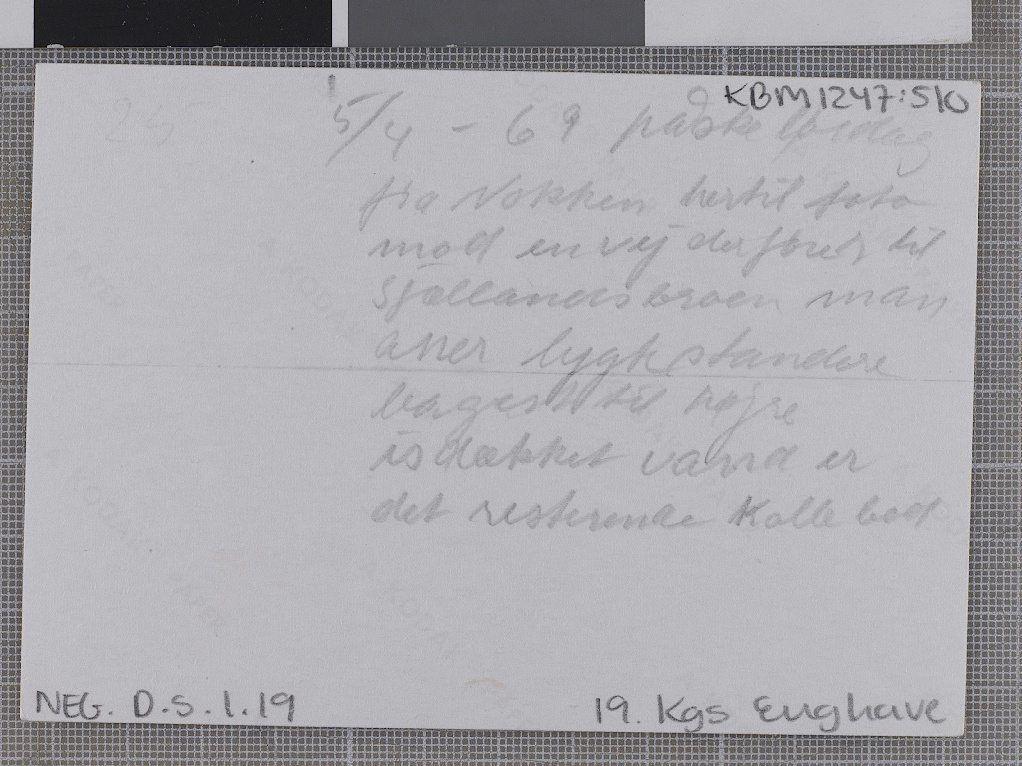 KBM1247:510
25
5/4 - 69 påskelørdag
fra Nokken hertil foto
mod en vej der fører til
Sjællandsbroen man
aner lygtstandere
bagest til højre
isdækket vand er
det resterende Kallebod
NEG. D.S.1.19
19. Kgs Enghave